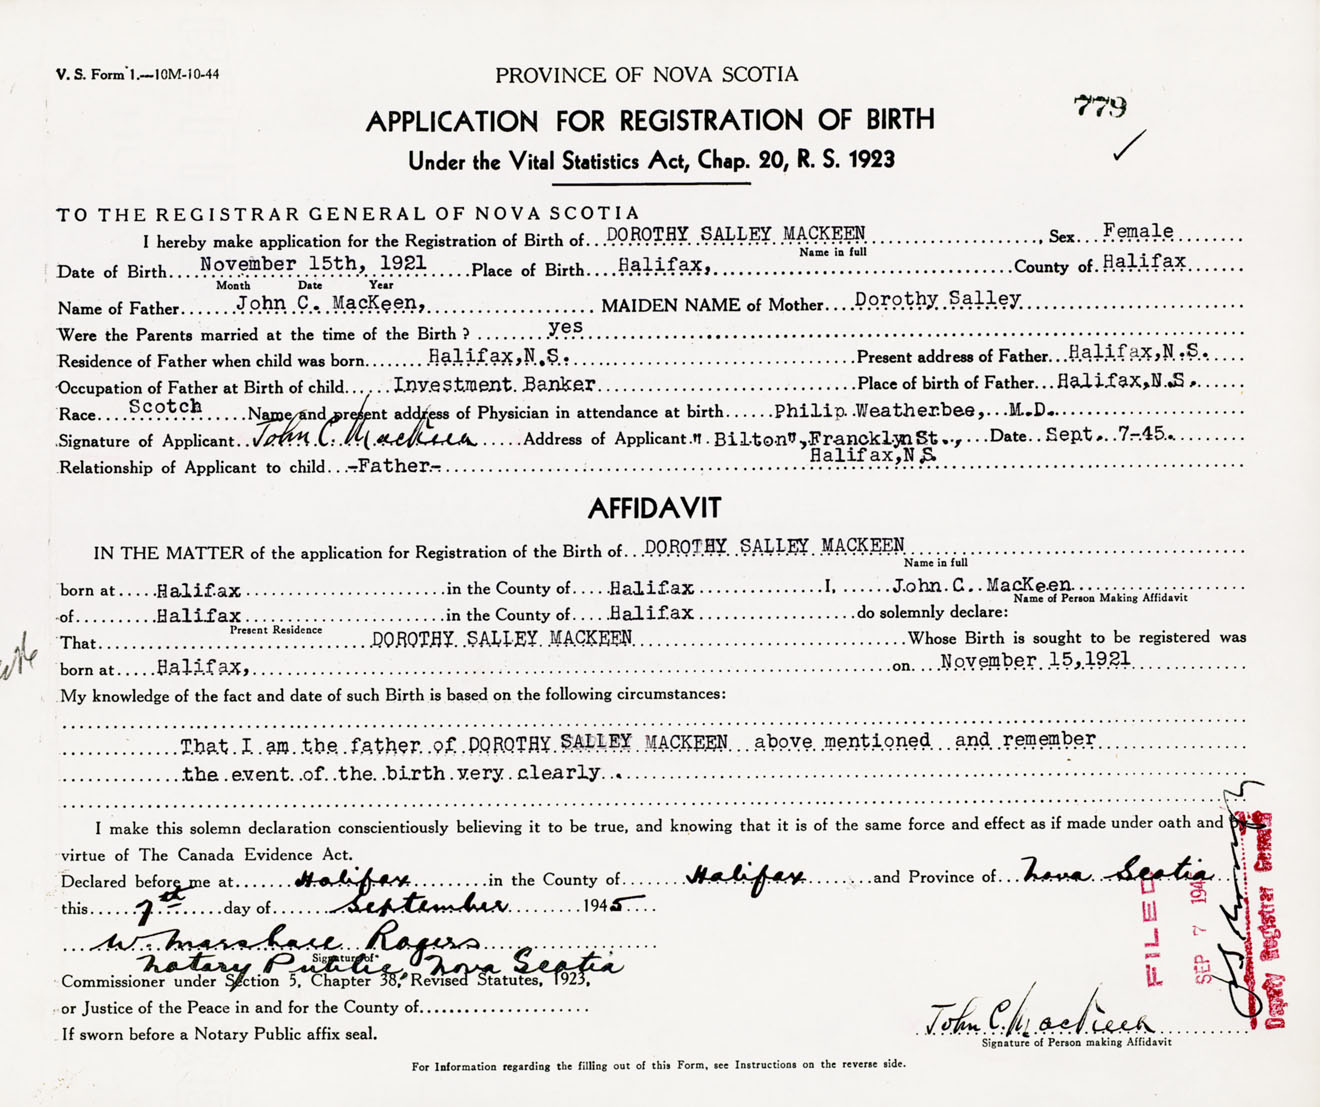 V. S. Form 1.—10M-10-44
PROVINCE OF NOVA SCOTIA
779
APPLICATION FOR REGISTRATION OF BIRTH
Under the Vital Statistics Act, Chap. 20, R. S. 1923
TO THE REGISTRAR GENERAL OF NOVA SCOTIA
I hereby make application for the Registration of Birth of DOROTHY SALLEY MACKEEN, Sex Female
Name in full
Date of Birth November 15th, 1921 Place of Birth Halifax, County of Halifax
Month Date Year
Name of Father John C. MacKeen, MAIDEN NAME of Mother Dorothy Salley
Were the Parents married at the time of the Birth? yes
Residence of Father when child was born Halifax,N.S. Present address of Father Halifax,N.S.
Occupation of Father at Birth of child Investment Banker Place of birth of Father Halifax,N.S.
Race Scotch Name and present address of Physician in attendance at birth Philip Weatherbee, M.D.
Signature of Applicant John C. MacKeen Address of Applicant "Bilton", Francklyn St., Date Sept. 7-45.
Halifax,N.S.
Relationship of Applicant to child -Father-
AFFIDAVIT
IN THE MATTER of the application for Registration of the Birth of DOROTHY SALLEY MACKEEN
Name in full
born at Halifax in the County of Halifax I, John C. MacKeen
Name of Person Making Affidavit
of Halifax in the County of Halifax do solemnly declare:
Present Residence
That DOROTHY SALLEY MACKEEN Whose Birth is sought to be registered was
born at Halifax, on November 15,1921
My knowledge of the fact and date of such Birth is based on the following circumstances:
That I am the father of DOROTHY SALLEY MACKEEN above mentioned and remember
the event of the birth very clearly .
I make this solemn declaration conscientiously believing it to be true, and knowing that it is of the same force and effect as if made under oath and by
virtue of The Canada Evidence Act.
Declared before me at Halifax in the County of Halifax and Province of Nova Scotia
this 7th day of September 1945
W. Marshall Rogers
Signature of
Notary Public, Nova Scotia
Commissioner under Section 5, Chapter 38, Revised Statutes, 1923,
or Justice of the Peace in and for the County of
If sworn before a Notary Public affix seal.
FILED
SEP 7 194
Deputy Registrar General
John C. MacKeen
Signature of Person making Affidavit
For Information regarding the filling out of this Form, see Instructions on the reverse side.